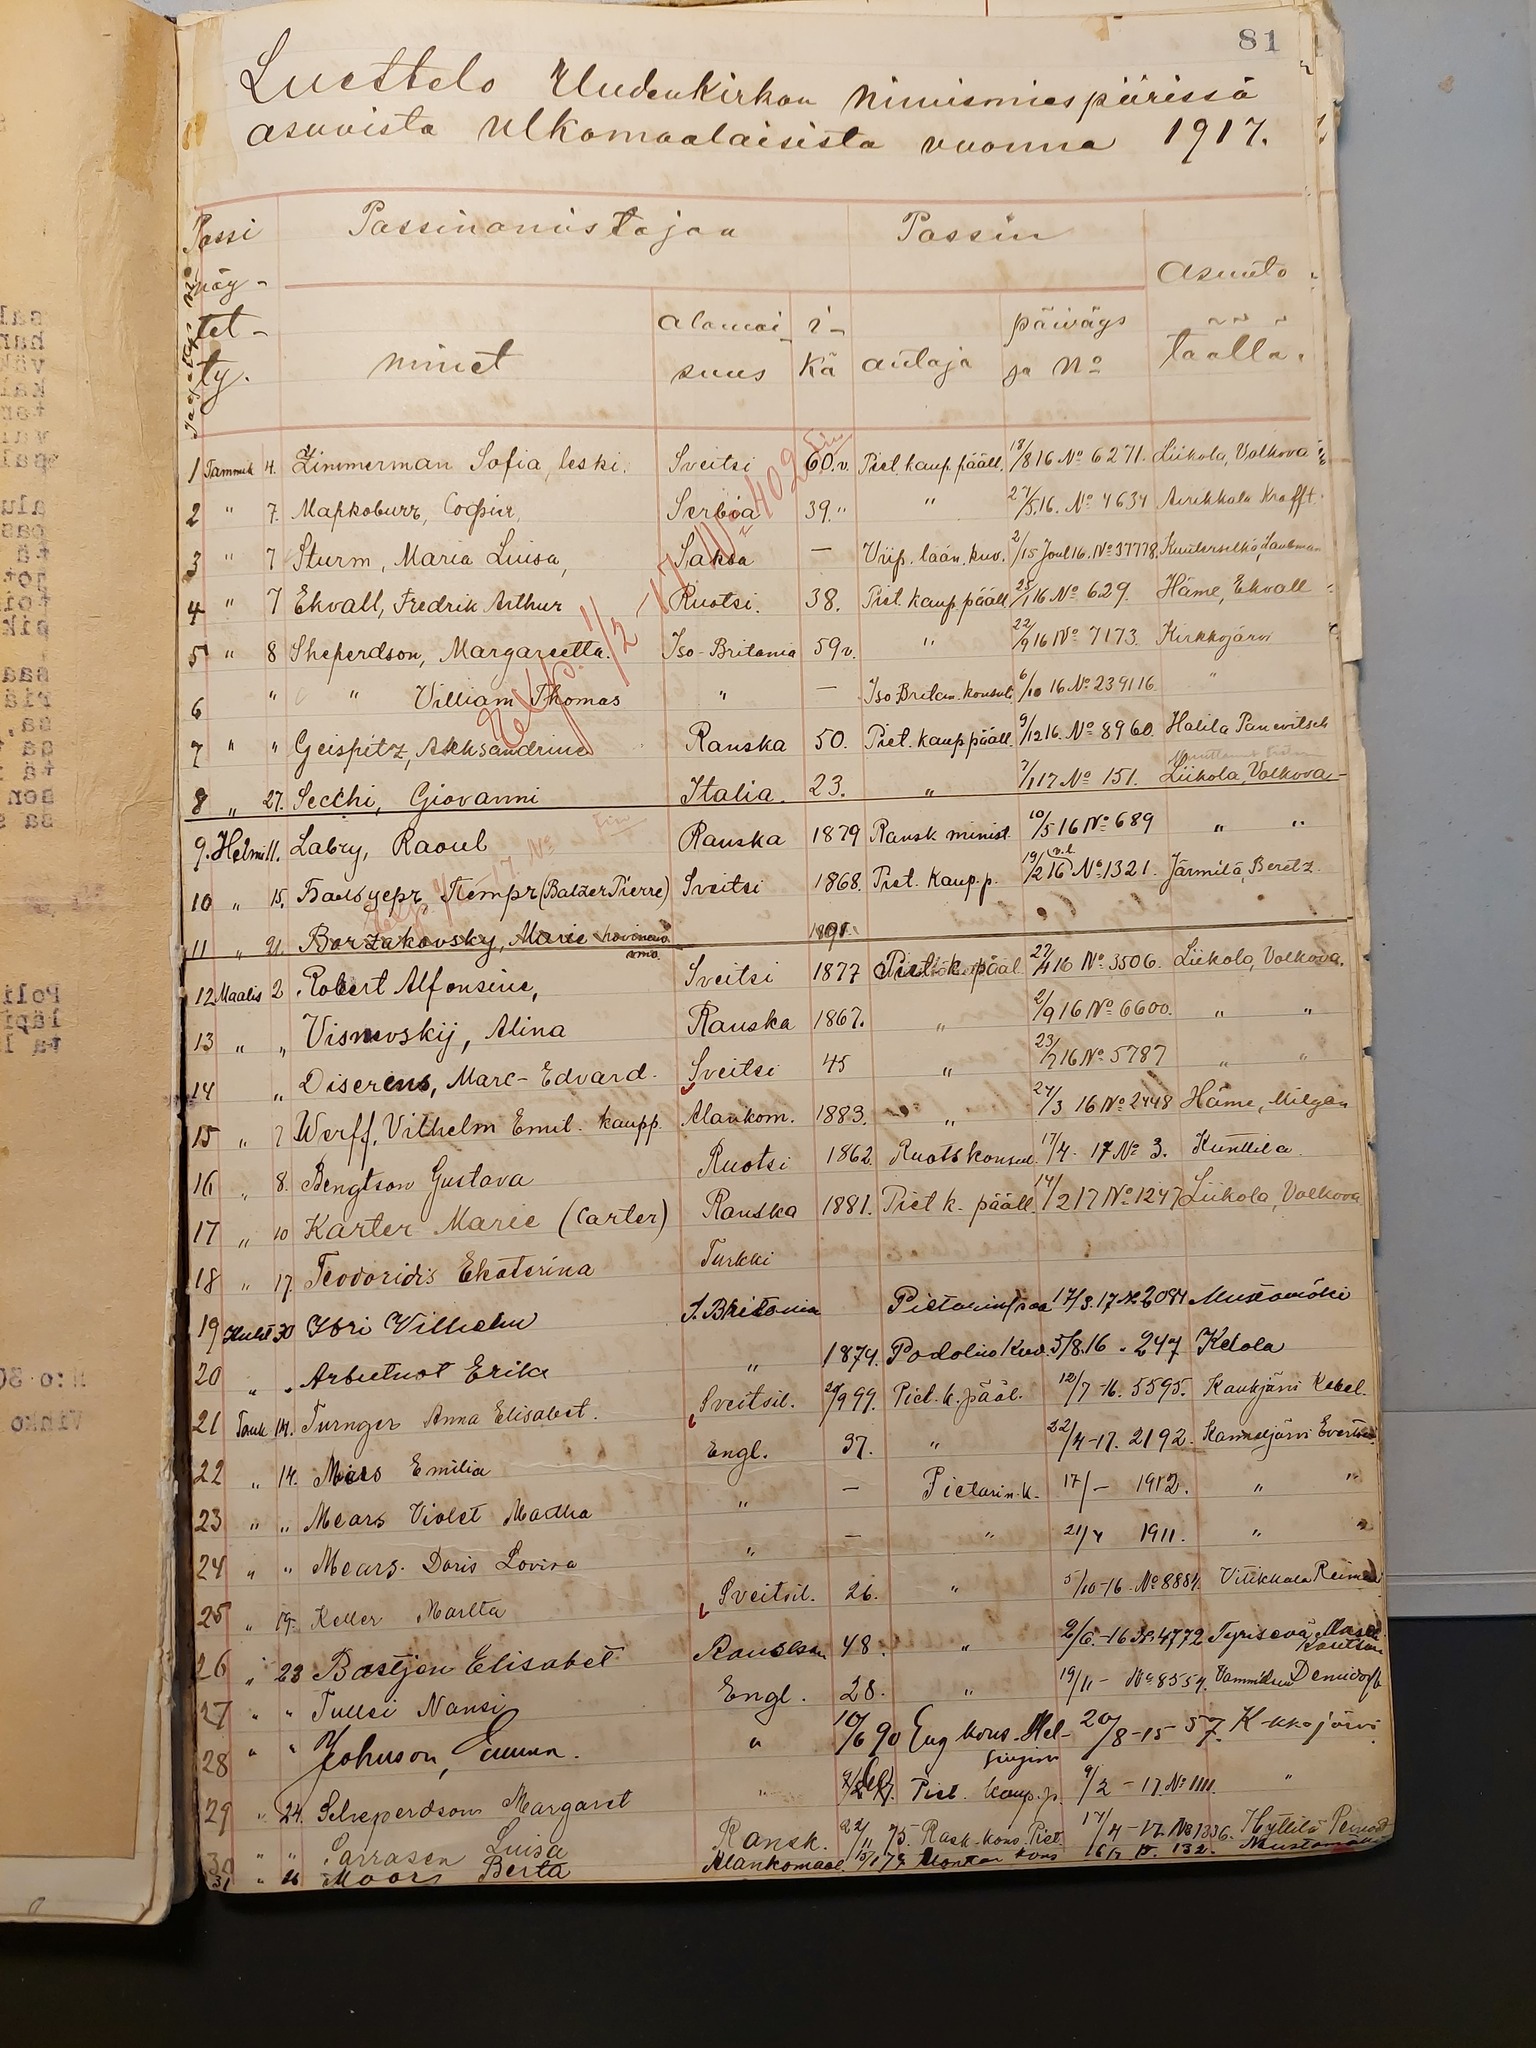 81
Luettelo Uudenkirkon nimismiespiirissä
asuvista ulkomaalaisista vuonna 1917.
Passi näy- tet- ty. Passinomistajan Passin asunto
nimet alamai- suus i- kä antaja päiväys ja No täällä.
1 Tammik 4. Zimmerman Sofia, leski. Sveitsi 60.v. Piet. kaup. pääll. 18/8 16 No 6271. Liikola, Volkova
2 " 7. Марковичъ, Софія, Serbia 39." " 27/5.16. No 4634 Airikkala Krafft.
3 " 7 Sturm, Maria Luisa, Saksa — Viip. lään. kuv. 2/15 Joul 16. No 37778,
4 " 7 Ekvall, Fredrik Arthur Ruotsi. 38. Piet. kaup pääll 25/1 16 No 629. Häme, Ekvall
5 " 8 Sheperdson, Margareetta. Iso-Britania 59v. " 22/9 16 No 7173. Kirkkojärvi
6 " " Villiam Thomas " — Iso Britan. konsul. 6/10 16 No 239116 "
7 " " Geispitz, Aleksandrine Ranska 50. Piet. kauppääll. 9/12 16. No 8960. Halila Panewitsch
8 " 27. Secchi, Giovanni Italia. 23. " 7/1 17 No 151. Liikola, Volkova
9. Helmi 11. Labry, Raoul Ranska 1879 Ransk minist. 10/5 16 No 689 " "
10 " 15. Бальцеръ Петръ (Balzer Pierre) Sveitsi 1868. Piet. Kaup. p. 19/2 16 No 1321. Järmilä, Beretz.
11 " 21. Borzakovsky, Marie
12 Maalis 2 Robert Alfonsine, Sveitsi 1877 Piet. k. pääl. 27/4 16 No 3506. Liikola, Volkova.
13 " " Visnevskij, Alina Ranska 1867. " 2/9 16 No 6600. " "
14 " Diserens, Marc-Edvard. Sveitsi 45 " 23/7 16 No 5787 " "
15 " 7 Werff, Vilhelm Emil. kaupp. Alankom. 1883. " 24/3 16 No 2448 Häme, Milgan
16 " 8. Bengtson Gustava Ruotsi 1862 Ruots konsul. 17/4. 17 No 3. Kunttila.
17 " 10 Karter Marie (Carter) Ranska 1881. Piet k. pääll. 14/2 17 No 1247 Liikola, Volkova
18 " 17. Teodoridis Ekaterina Turkki
19 Huht 30 Vilhelm I. Britania 17/3. 17 Mustamäki
20 " " Arbutnot Erik " 1874. Podolin Kuv. 5/8.16 - 247 Kelola
21 Touk 14. Turnger Anna Elisabet. Sveitsil. 29/9 99. Piet. k. pääl. 12/7 -16. 5595. Kaukjärvi Kabel.
22 " 14. Emilia Engl. 37. " 22/4 -17. 2192. Kanneljärvi
23 " " Mears Violet Martha " — Pietarin. k. 17/- 1912. " "
24 " " Mears. Doris Lovisa " — " 21/4 1911. " "
25 " 19. Keller Martta Sveitsil. 26. " 5/10 -16. No 8884. Vitikkala
26 " 23 Bastjen Elisabet Ranskan 48. " 2/6.-16 No 4772 Tyrisevä
27 " " Tullsi Nansi Engl. 28. " 19/11 - No 8554. Vammelsuu Demidoff
28 " " Johnson, Emma. " 10/6 90 Eng kons. Hel- singin 20/8 -15- 57. K-kkojärvi
29 " 24. Scheperdson Margaret " Piet. kaup. p. 9/2 - 17. No 1111. "
30 " " Sarrasen Luisa Ransk. 22/11 75. Rask. kons. Piet. 17/4 -17. No 1336. Hyttilä
31 " 26 Moors Berta Alankomaal 132. Mustamäki